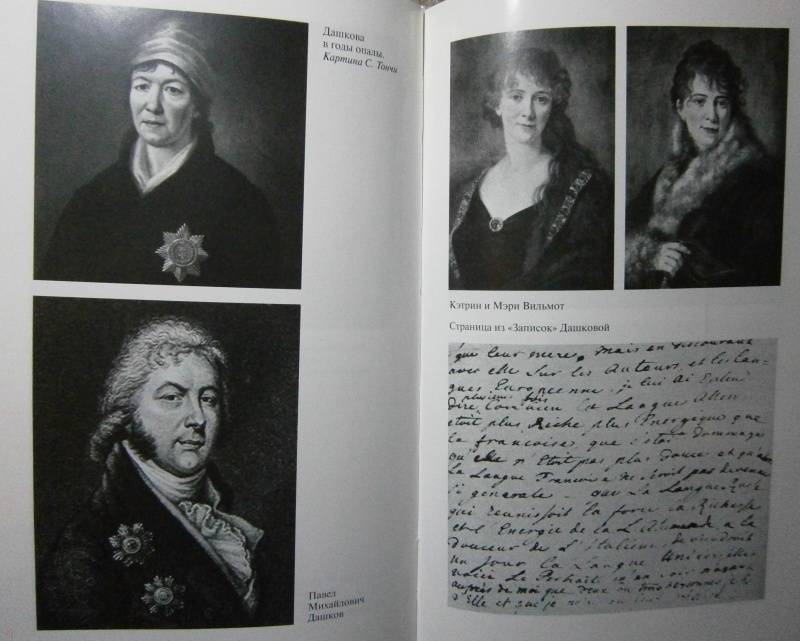 Дашкова
в годы опалы.
Картина С. Тончи
Павел
Михайлович
Дашков
Кэтрин и Мэри Вильмот
Страница из «Записок» Дашковой
que leur mere, Mais en discourant
avec elle Sur les Auteurs, et les Lan-
gues Europeenne, je lui ai Enten
dire plusieurs fois Combien la Langue Allem
etoit plus Riche plus Energique que
la francoise, que c'etoit dommage
qu'elle n'Etoit pas plus douce et
La Langue Francoise ne seroit pas devenue
Si generale – que La Langue
qui reunissoit la force la Richesse
et l'Energie de la L'Allemande, a la
douceur de L'italiene, deviendroit
un jour La Langue Universelle
voici Le Portrait
aupres de moi que deux ou trois personnes,
d'Elle et que je